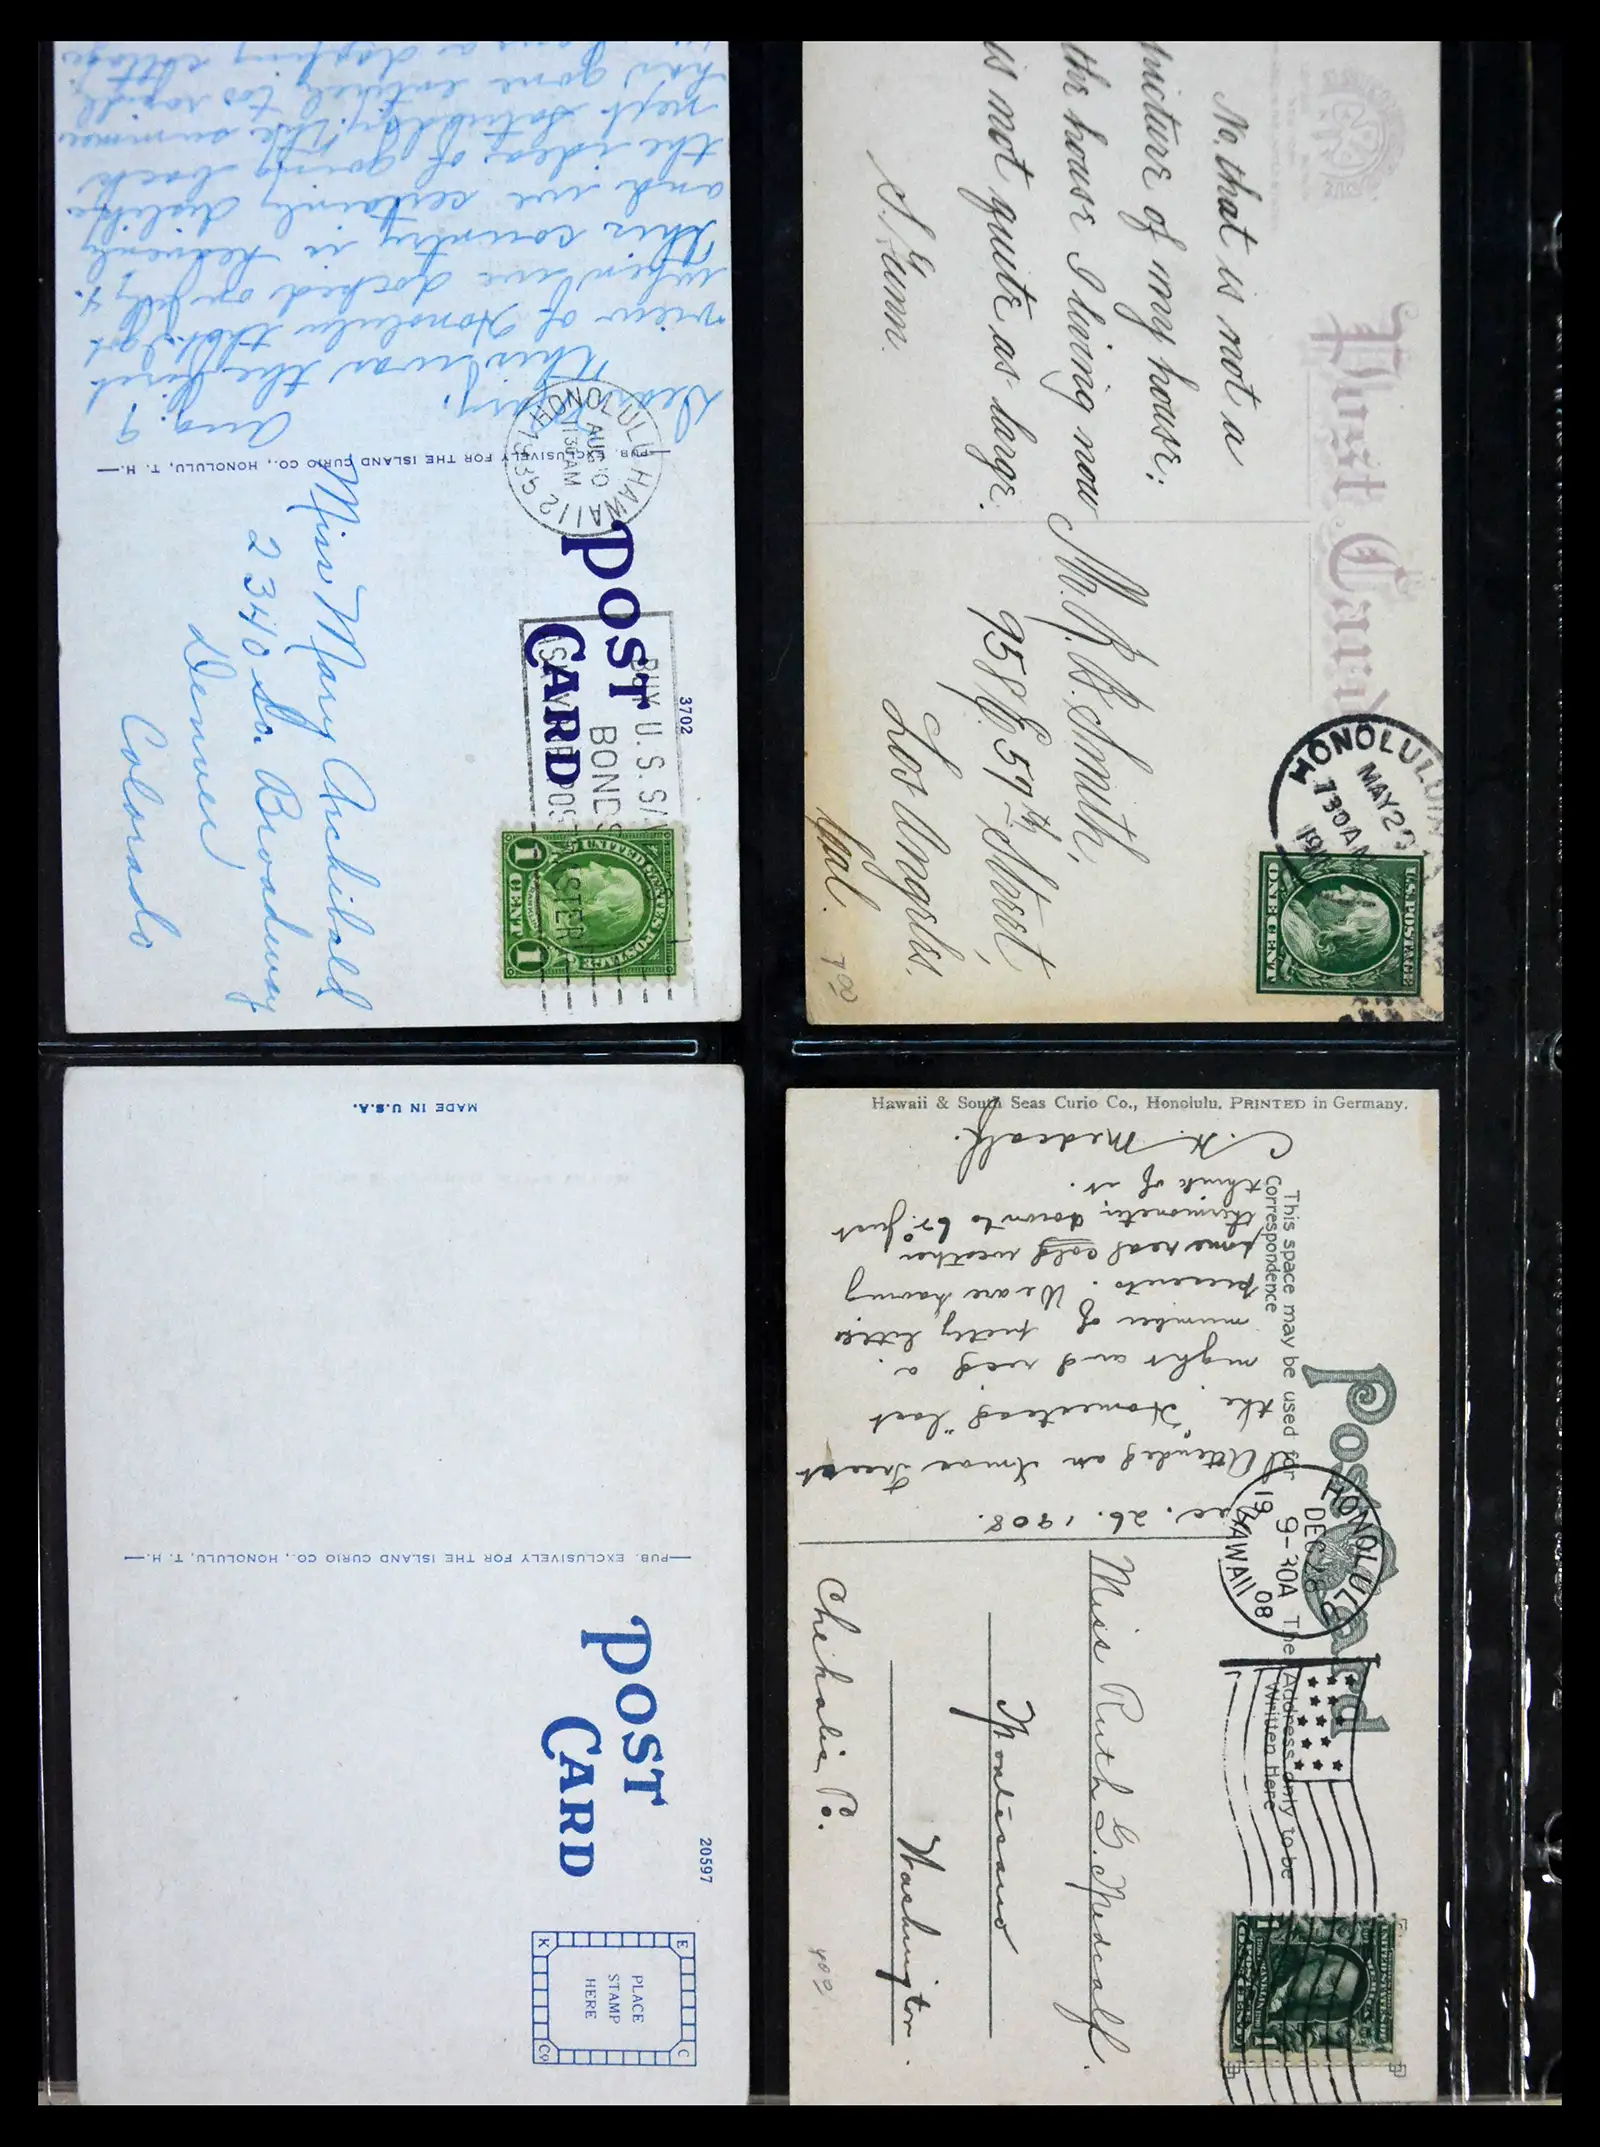 Aug. 9
Dear Mary:
This was the first
view of Honolulu that I got
when we docked on July 4.
This country is heavenly
and we certainly dislike
the idea of going back
next Saturday. The summer
has gone entirely too rapidly.
PUB. EXCLUSIVELY FOR THE ISLAND CURIO CO., HONOLULU, T. H.
HONOLULU HAWAII
AUG 10
11 30 AM
1939
POST
CARD
3702
BUY U.S. SA
BONDS
1 CENT 1
UNITED STATES POSTAGE
Miss Mary Archibald
2340 So. Broadway
Denver
Colorado
No. that is not a
picture of my house:
the house I living now
is not quite as large.
S. Gunn.
Post Card
HONOLULU
MAY 23
730 AM
U.S. POSTAGE
ONE CENT
Mr. R. B. Smith,
958 E. 59th Street,
Los Angeles.
Cal.
MADE IN U.S.A.
PUB. EXCLUSIVELY FOR THE ISLAND CURIO CO., HONOLULU, T. H.
POST
CARD
20597
E K C Co
PLACE
STAMP
HERE
Hawaii & South Seas Curio Co., Honolulu. PRINTED in Germany.
Post Card
This space may be used for
Correspondence
The Address only to be
Written Here
HONOLULU
DEC 28
9-30A
1908
HAWAII
Dec. 26. 1908.
Attended an Xmas tree at
the "Homestead" last
night and rec'd a
number of pretty little
presents. We are having
some real cold weather
thermometer down to 65°. Just
think of it.
C. H. Medcalf.
Miss Ruth G. Medcalf.
Montesano
Washington.
Chehalis Co.
403